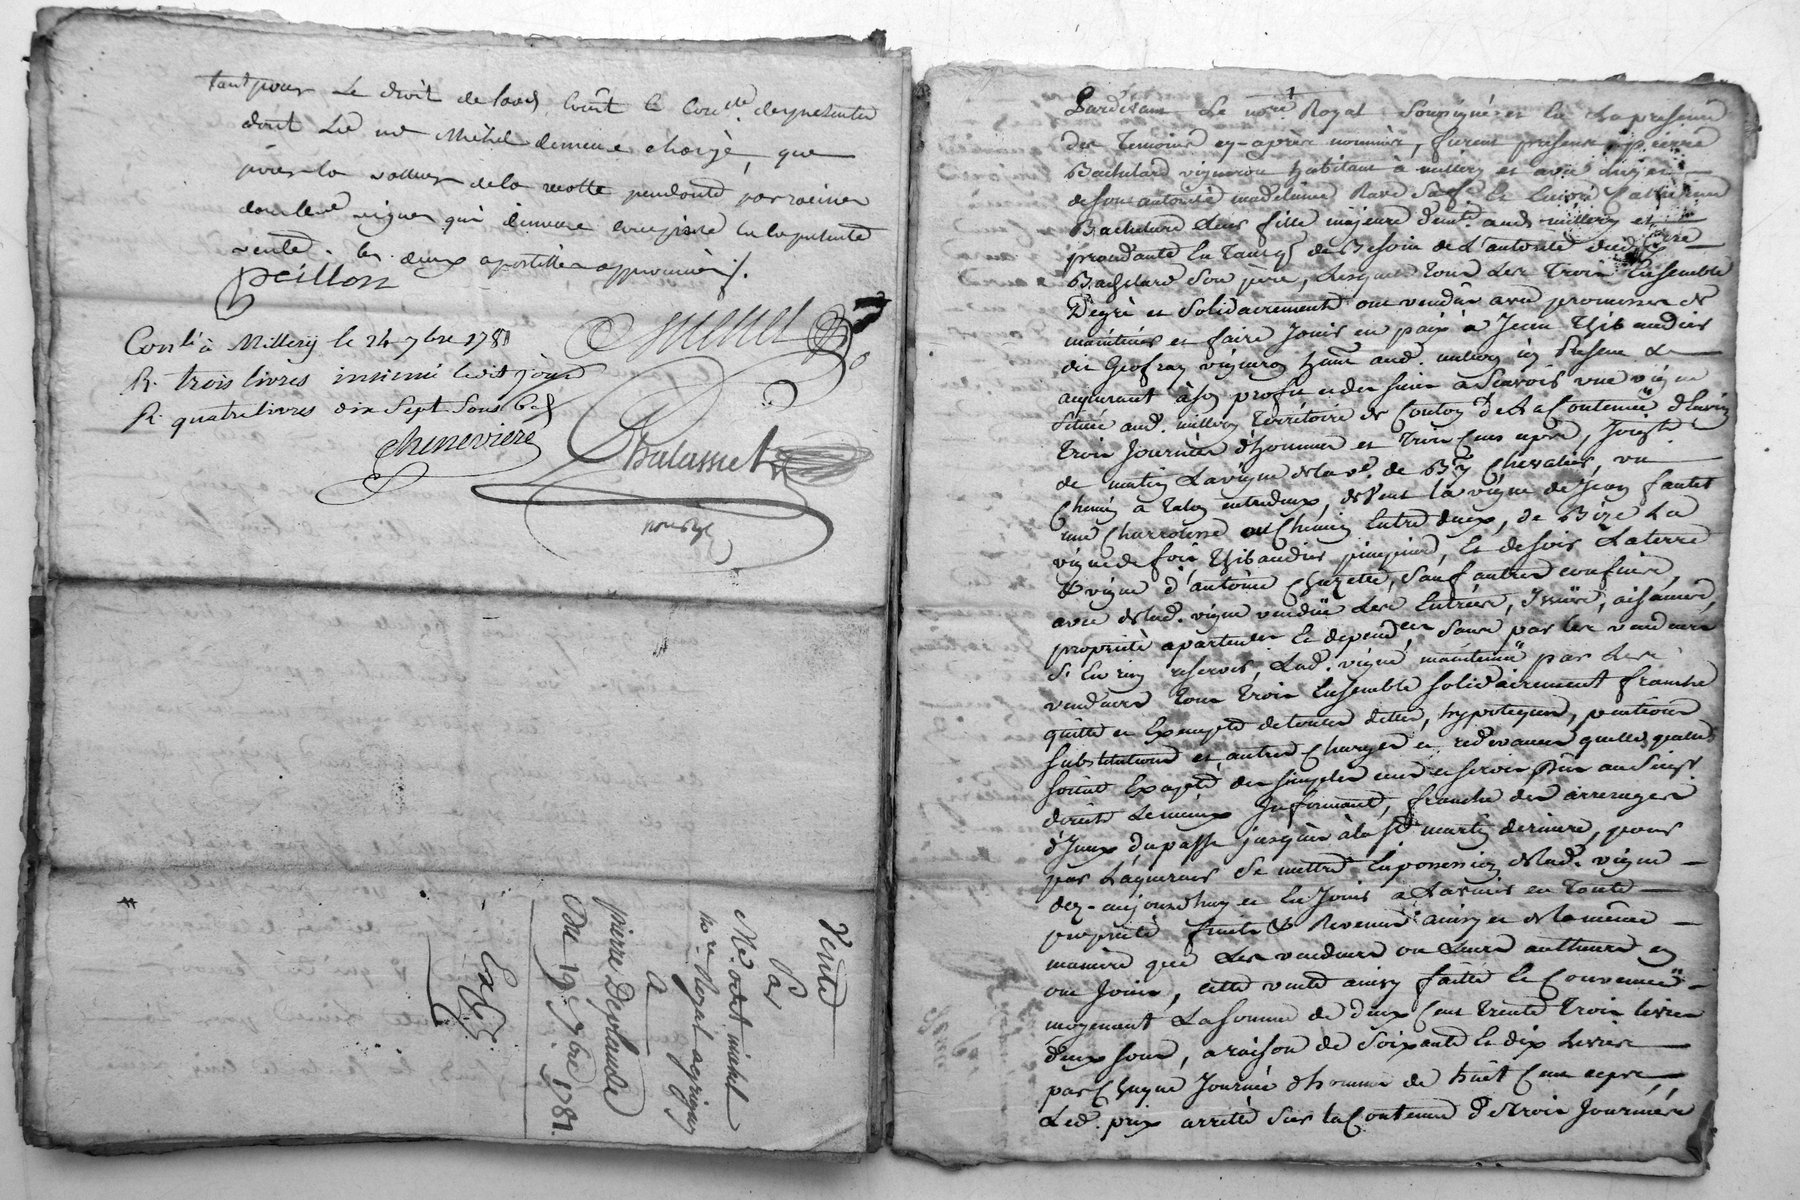 tant pour Le droit de laods, Coût le Con.lle des presentes
dont Led. me Michel demeure chargé, que
pour la valleur de la recolte pendante par racines
dans lad. vigne qui demeure comprise en la presente
vente. les deux apostilles approuvées /.
peillon
Michel
Con.lé à Millery le 24 7bre 1781
R. trois livres insinué ledit jour
R. quatre livres dix Sept Sous 6 d
Chenevière
Thalassiet
Vente
Par
Me odet michel
no.re Royal a grigny
A
pierre Deplaude
Du 19e 7bre 1781.
Exp.
Pardevant Le no.re Royal Soussigné et En La presence
des Temoins cy-après nommés, furent presens pierre
Bachelard vigneron habitant à millery et avec luy et
de son autorité madelaine Rave Sa fe Et Encore Catherine
Bachelard Leur fille majeure dud. millery et
procedante En Tant que de Besoin de L'autorité dud. pierre
Bachelard Son pere, Lesquels Tous Les Trois Ensemble
De gré et Solidairement ont vendu avec promesse de
maintenir et faire Jouir en paix à Jean Thibaudier
dit Geofray vigneron habt aud. millery icy Present Et
acquerant à son profit et des Siens a Scavoir une vigne
Située aud. millery Territoire de La Contenue d'Environ
Trois Journées d'hommes et Trois Ceps, Joignt.
de matin La vigne de la ve. de Chevalier, un
Chemin à Talon entre deux, de vent La vigne de Jean fantet
une Charriere ou Chemin Entre deux, de Bize La
vigne de Thibaudier, Et de soir La terre
& vigne d'antoine Chazette, Sauf autres confins,
avec de lad. vigne vendue Les Entrées, Issues, aisances,
propriétés aparten.ces Et depend.ces Sans par les vendeurs
S'En rien reserver, Lad. vigne maintenue par Les
vendeurs Tous Trois Ensemble Solidairement franche
quitte et Exempte de toutes dettes, hypoteques, pentions
Substitutions et autres Charges et redevances quelles quelles
Soient Excepté des Simples cens et Servis au Seigr.
directe Le mieux Informant, franche des arrerages
d'Iceux du passé jusqu'à la St. martin derniere, pour
par L'aquereur Se mettre En possession de lad. vigne
dez-aujourdhuy et En Jouir a L'avenir en Toute
proprieté fruits & Revenus ainsy et de la même
maniere que Les vendeurs ou Leurs autheurs en
ont Joui, cette vente ainsy faitte et Convenue
moyenant La Somme de deux Cent Trente Trois livres
deux Sous, a raison de Soixante Et dix Livres
par Chaque Journée d'homme de huit Cens Ceps
Led. prix arretté Sur La Contenue de Trois Journées